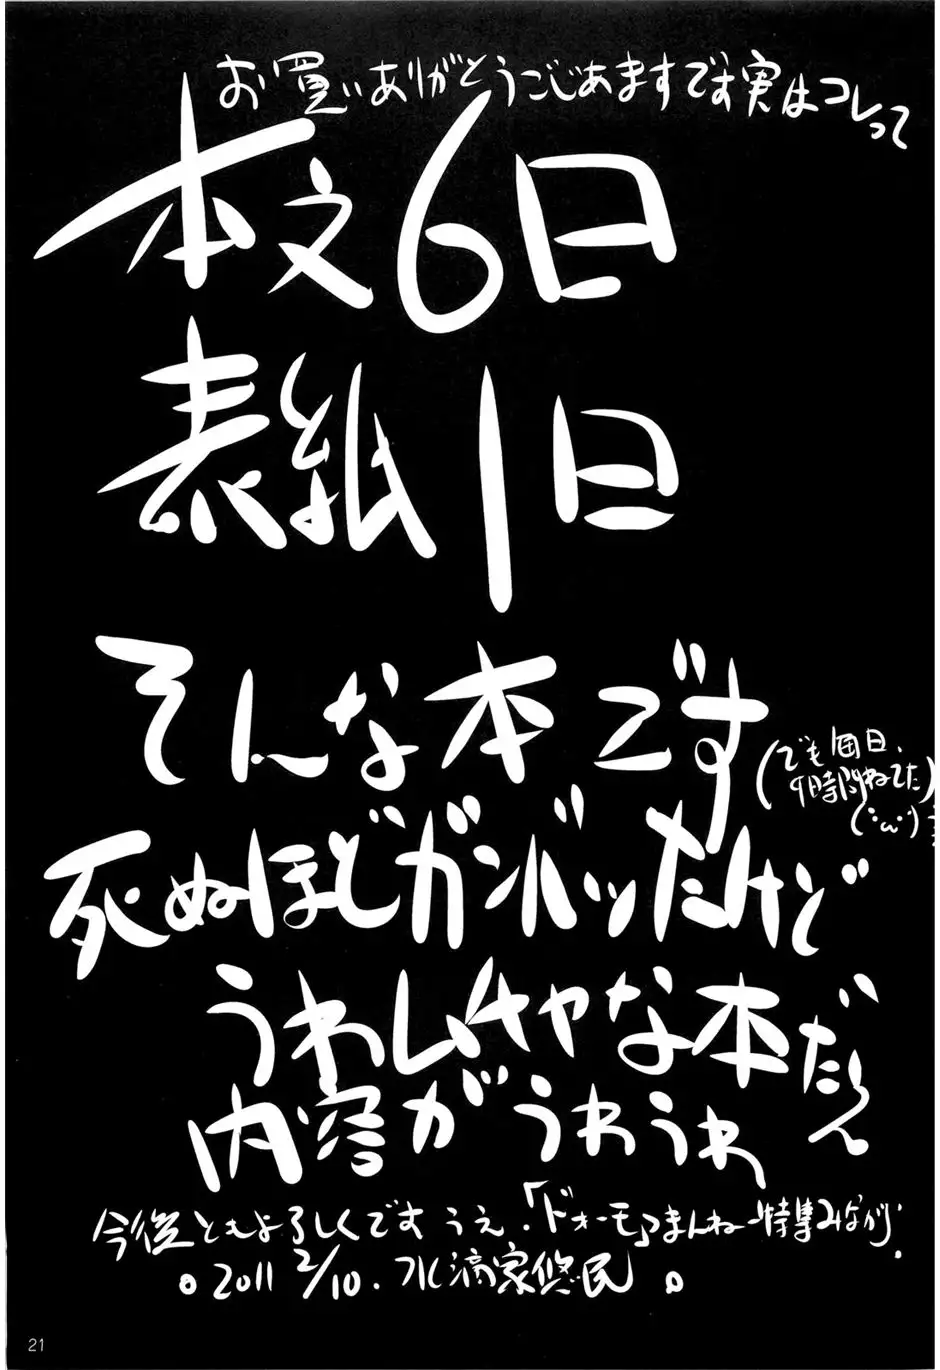 お買いありがとうごじあますです実はコレって
本文6日
表紙1日
そんな本です
(でも毎日、
9時間ねてた)
(・ω・)
死ぬほどガンバッたけど
うわムチャな本だ
内容がうわうわ
今後ともよろしくです うえ.「ドォーモ」まんねー特集みながら.
。2011 2/10. 水滴家悠民。
21